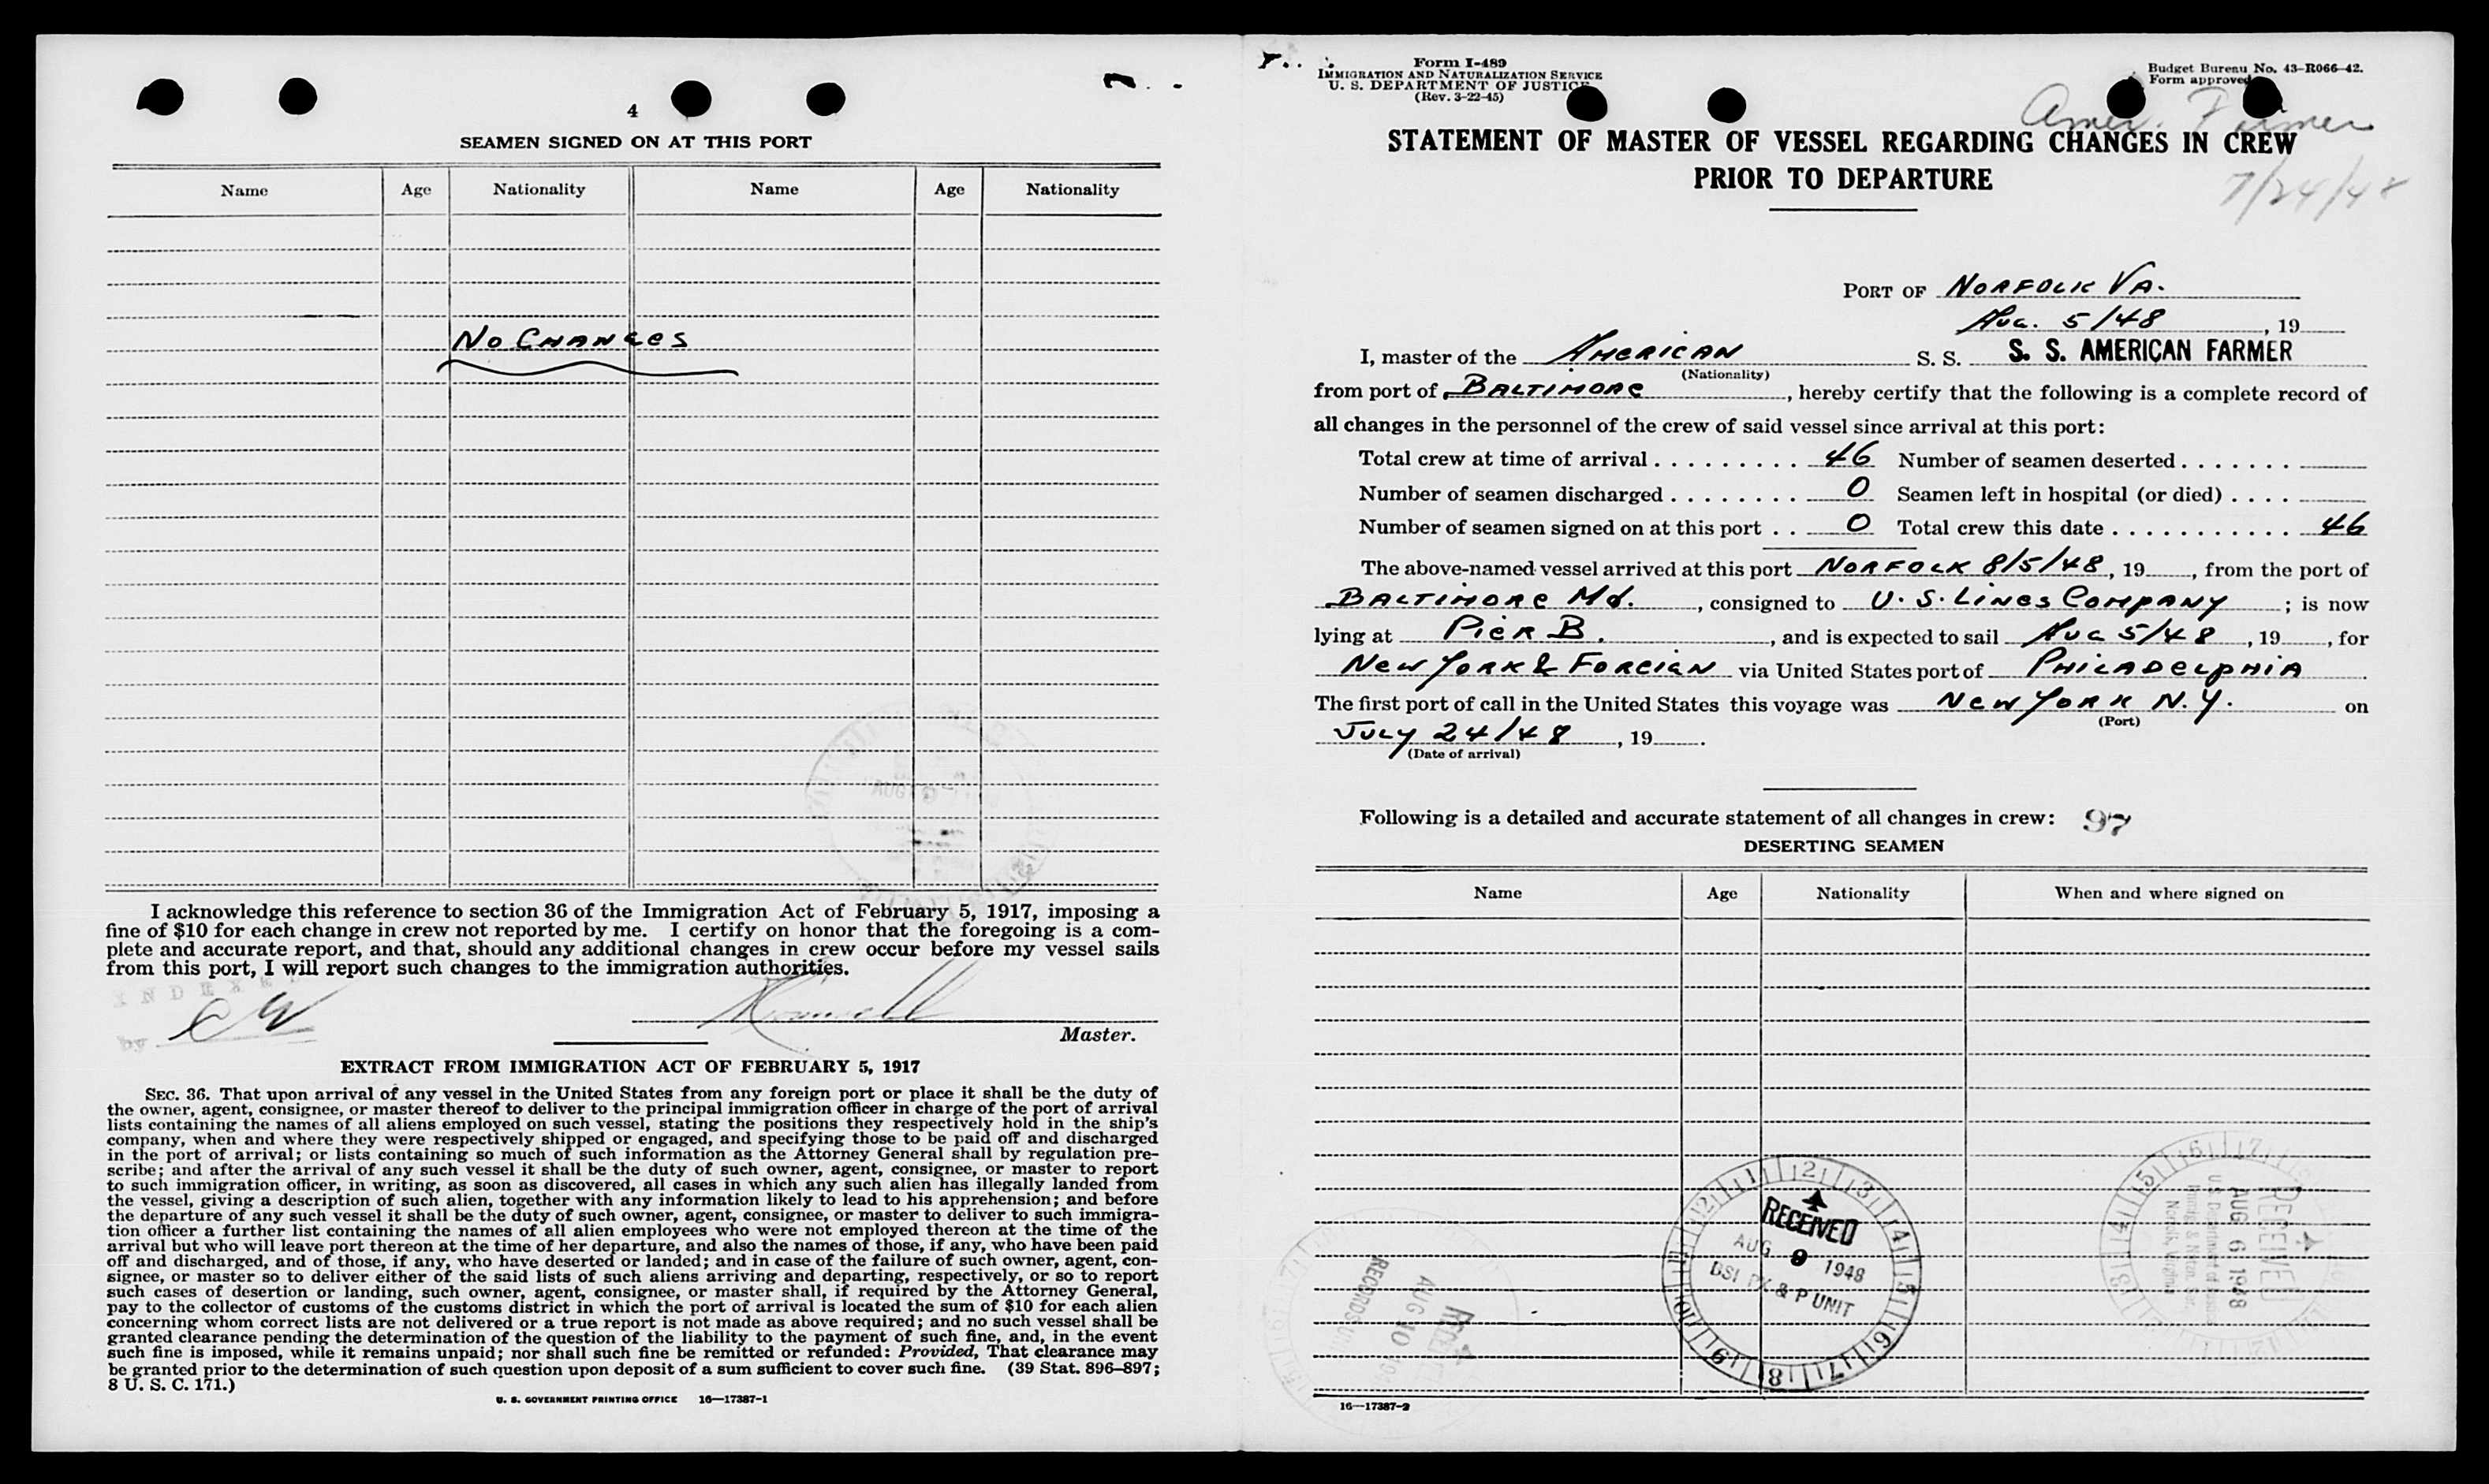 4
SEAMEN SIGNED ON AT THIS PORT
Name Age Nationality Name Age Nationality
No Changes
I acknowledge this reference to section 36 of the Immigration Act of February 5, 1917, imposing a
fine of $10 for each change in crew not reported by me. I certify on honor that the foregoing is a com-
plete and accurate report, and that, should any additional changes in crew occur before my vessel sails
from this port, I will report such changes to the immigration authorities.
INDEXED
by
Master.
EXTRACT FROM IMMIGRATION ACT OF FEBRUARY 5, 1917
SEC. 36. That upon arrival of any vessel in the United States from any foreign port or place it shall be the duty of
the owner, agent, consignee, or master thereof to deliver to the principal immigration officer in charge of the port of arrival
lists containing the names of all aliens employed on such vessel, stating the positions they respectively hold in the ship's
company, when and where they were respectively shipped or engaged, and specifying those to be paid off and discharged
in the port of arrival; or lists containing so much of such information as the Attorney General shall by regulation pre-
scribe; and after the arrival of any such vessel it shall be the duty of such owner, agent, consignee, or master to report
to such immigration officer, in writing, as soon as discovered, all cases in which any such alien has illegally landed from
the vessel, giving a description of such alien, together with any information likely to lead to his apprehension; and before
the departure of any such vessel it shall be the duty of such owner, agent, consignee, or master to deliver to such immigra-
tion officer a further list containing the names of all alien employees who were not employed thereon at the time of the
arrival but who will leave port thereon at the time of her departure, and also the names of those, if any, who have been paid
off and discharged, and of those, if any, who have deserted or landed; and in case of the failure of such owner, agent, con-
signee, or master so to deliver either of the said lists of such aliens arriving and departing, respectively, or so to report
such cases of desertion or landing, such owner, agent, consignee, or master shall, if required by the Attorney General,
pay to the collector of customs of the customs district in which the port of arrival is located the sum of $10 for each alien
concerning whom correct lists are not delivered or a true report is not made as above required; and no such vessel shall be
granted clearance pending the determination of the question of the liability to the payment of such fine, and, in the event
such fine is imposed, while it remains unpaid; nor shall such fine be remitted or refunded: Provided, That clearance may
be granted prior to the determination of such question upon deposit of a sum sufficient to cover such fine. (39 Stat. 896–897;
8 U. S. C. 171.)
U. S. GOVERNMENT PRINTING OFFICE 16—17387-1
Form I-489
IMMIGRATION AND NATURALIZATION SERVICE
U. S. DEPARTMENT OF JUSTICE
(Rev. 3-22-45)
Budget Bureau No. 43-R066-42.
Form approved
Amer. Farmer
7/24/48
STATEMENT OF MASTER OF VESSEL REGARDING CHANGES IN CREW
PRIOR TO DEPARTURE
PORT OF Norfolk Va.
Aug. 5/48, 19
I, master of the American S. S. S. S. AMERICAN FARMER
(Nationality)
from port of Baltimore, hereby certify that the following is a complete record of
all changes in the personnel of the crew of said vessel since arrival at this port:
Total crew at time of arrival 46 Number of seamen deserted
Number of seamen discharged 0 Seamen left in hospital (or died)
Number of seamen signed on at this port 0 Total crew this date 46
The above-named vessel arrived at this port Norfolk 8/5/48, 19, from the port of
Baltimore Md., consigned to U. S. Lines Company; is now
lying at Pier B., and is expected to sail Aug 5/48, 19, for
New York & Foreign via United States port of Philadelphia
The first port of call in the United States this voyage was New York N.Y. on
(Port)
July 24/48, 19.
(Date of arrival)
Following is a detailed and accurate statement of all changes in crew: 97
DESERTING SEAMEN
Name Age Nationality When and where signed on
RECEIVED
AUG 9 1948
BSI PX & P UNIT
RECEIVED
AUG 6 1948
U.S. Department of Justice
Immig. & Natur. Ser.
Norfolk, Virginia
AUG 10
RECORDS
16—17387-2